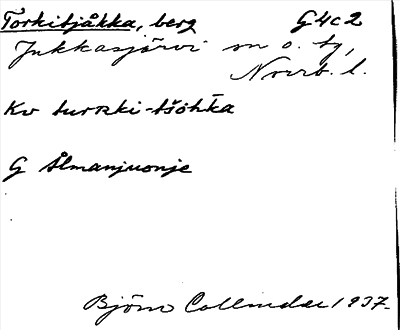 Torkitjåkka, berg G4c2
Jukkasjärvi sn o. tg,
Norrb. l.
Kv turkki-tšohka
G Ålmanjuonje
Björn Collinder 1937.